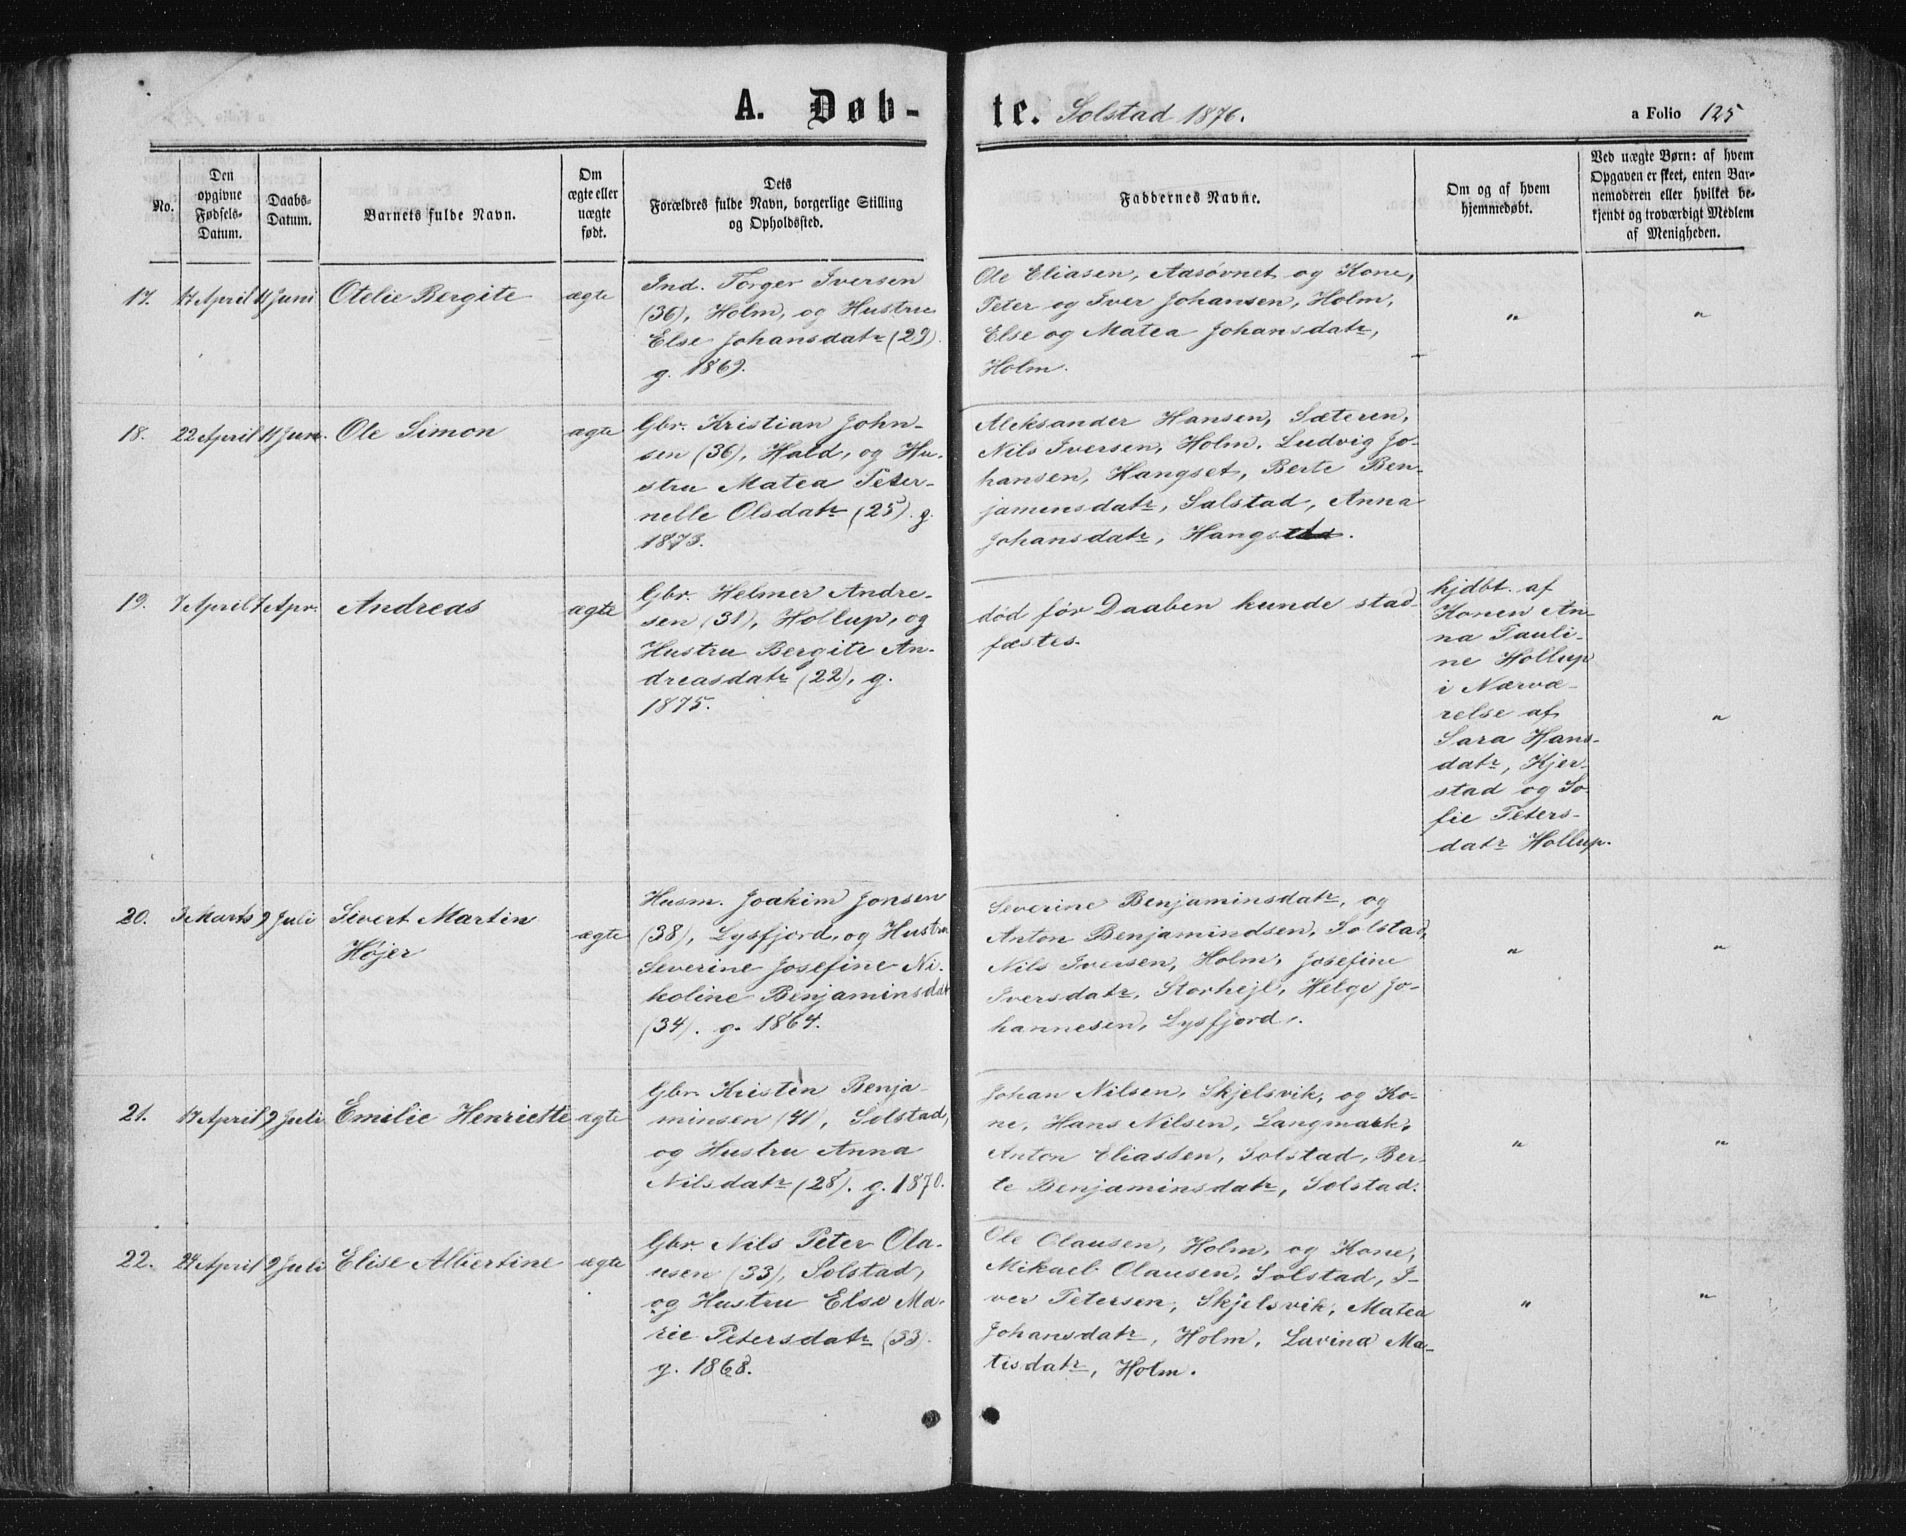 A. Døbte. Solstad 1876. a Folio 125
No.
Den
opgivne
Fødsels-
Datum.
Daabs-
Datum.
Barnets fulde Navn.
Om
ægte eller
uægte
født.
Dets
Forældres fulde Navn, borgerlige Stilling
og Opholdssted.
Faddernes Navne.
Om og af hvem
hjemmedøbt.
Ved uægte Børn: af hvem
Opgaven er skeet, enten Bar-
nemoderen eller hvilket be-
kjendt og troværdigt Medlem
af Menigheden.
17. 17 April 11 Juni Otelie Bergite ægte
Ind. Torger Iversen
(36), Holm, og Hustru
Else Johansdatr (29).
g. 1869.
Ole Eliasen, Aasøvnet og Kone,
Peter og Iver Johansen, Holm,
Else og Matea Johansdatr,
Holm.
" "
18. 22 April 11 Juni. Ole Simon ægte
Gbr. Kristian John-
sen (36), Hald, og Hu-
stru Matea Peter-
nelle Olsdatr (25). g.
1873.
Aleksander Hansen, Sæteren,
Nils Iversen, Holm. Ludvig Jo-
hansen, Hangset, Berte Ben-
jamensdatr, Salstad, Anna
Johansdatr,
19. 7 April 7 Apr. Andreas ægte
Gbr. Helmer Andre-
sen (31), Hollup, og
Hustru Bergite An-
dreasdatr (22), g.
1875.
død før Daaben kunde stad-
fæstes.
hjdbt. af
Konen An-
na Pauli-
ne Hollup
i Nærvæ-
relse af
Sara Hans-
datr, Kjer-
stad og So-
fie Peters-
datr Hollup.
"
20. 3 Marts 9 Juli Sivert Martin
Højer
ægte
Husm. Joakim Jonsen
(38), Lysfjord, og Hustru
Severine Josefine Ni-
koline Benjaminsdat
(34). g. 1864.
Severine Benjaminsdatr, og
Anton Benjamindsen, Solstad,
Nils Iversen, Holm, Josefine
Iversdatr, Storhejl, Helge Jo-
hannesen, Lysfjord.
" "
21. 17 April 9 Juli Emilie Henriette ægte
Gbr. Kristen Benja-
minsen (41, Solstad,
og Hustru Anna
Nilsdatr (28). g. 1870.
Johan Nilsen, Skjelsvik, og Ko-
ne, Hans Nilsen, Langmark,
Anton Eliassen, Solstad, Ber-
te Benjaminsdatr, Solstad.
" "
22. 24 April 9 Juli Elise Albertine ægte
Gbr. Nils Peter Ola-
usen (33), Solstad,
og Hustru Else Ma-
rie Petersdatr (33).
g. 1868.
Ole Olausen, Holm, og Kone,
Mikael Olausen, Solstad, I-
ver Petersen, Skjelsvik, Matea
Johansdatr, Holm, Lavina Ma-
tisdatr, Holm.
" "